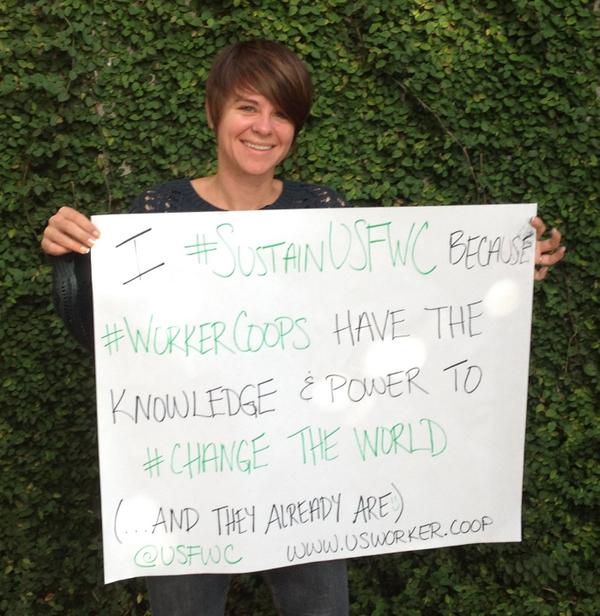 I #SUSTAINUSFWC BECAUSE
#WORKERCOOPS HAVE THE
KNOWLEDGE & POWER TO
#CHANGE THE WORLD
(...AND THEY ALREADY ARE)
@USFWC WWW.USWORKER.COOP